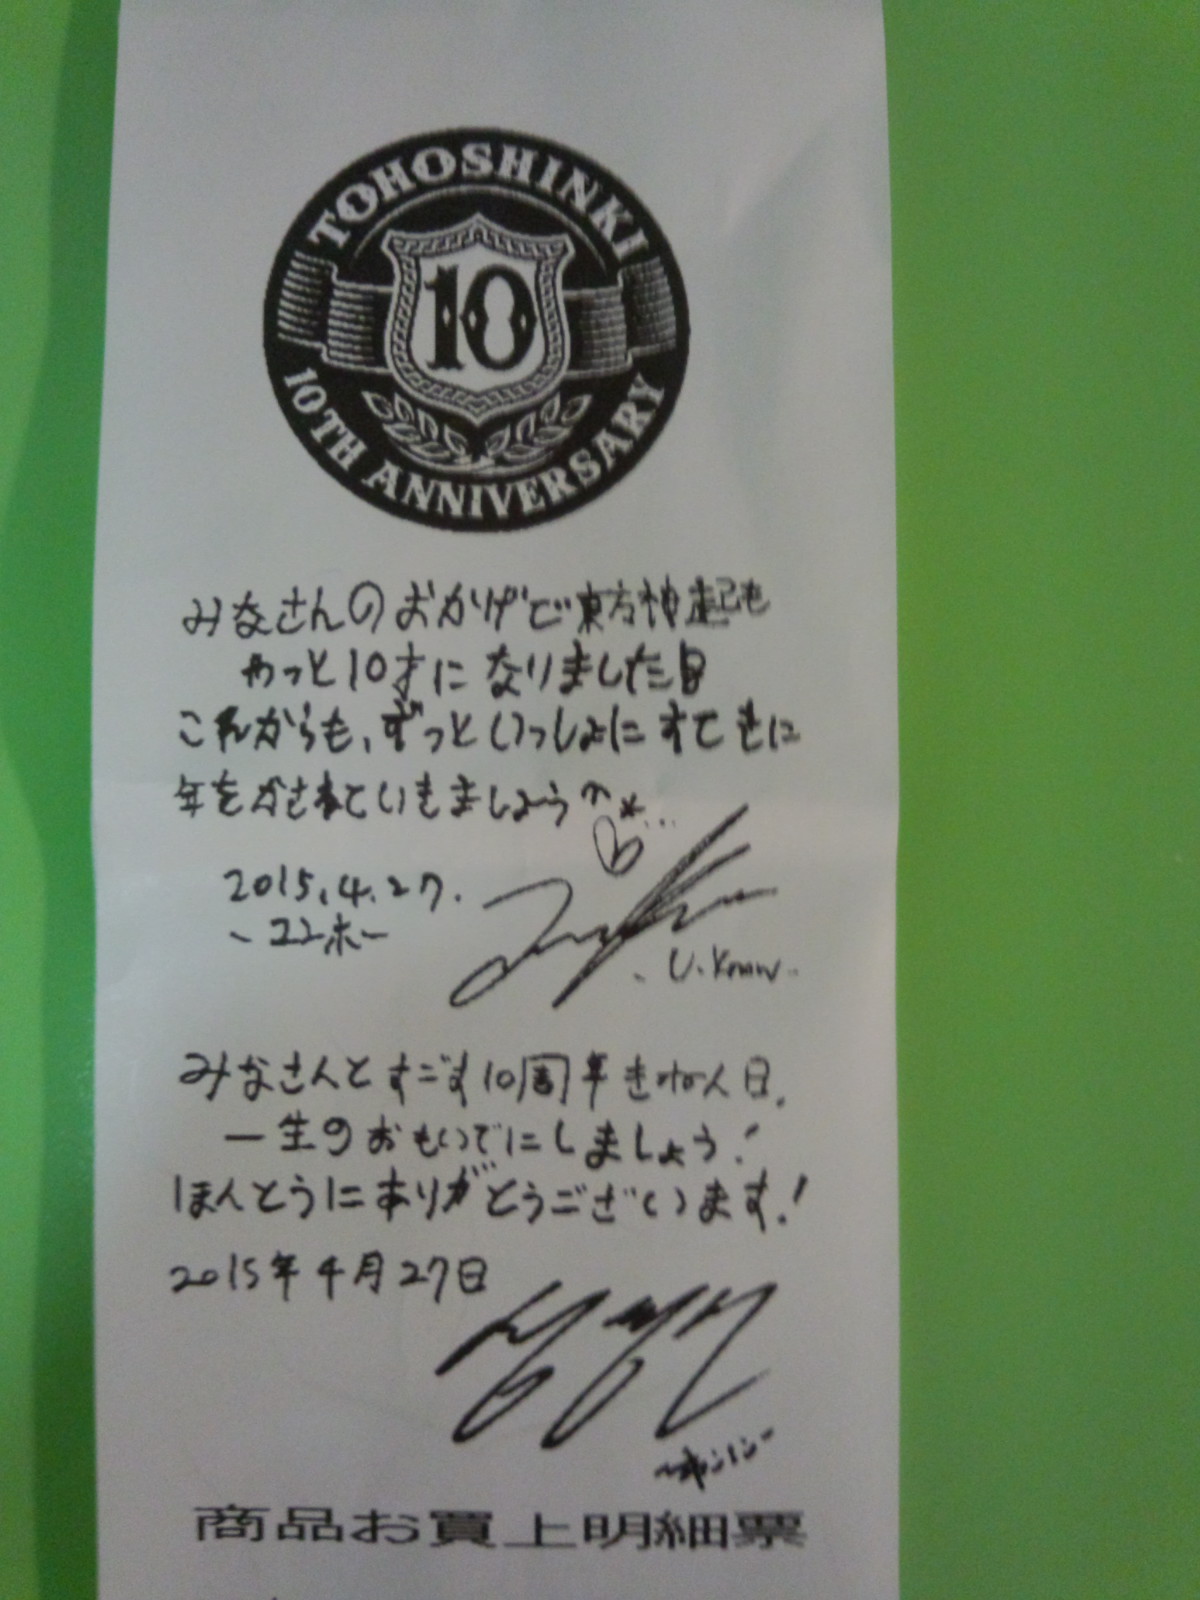 TOHOSHINKI
10
10TH ANNIVERSARY
みなさんのおかげで東方神起も
やっと10才になりました日
これからも、ずっといっしょにすてきに
年をかさねていきましょう
2015.4.27.
~ユンホ~
U.Know
みなさんとすごす10周年きねん日.
一生のおもいでにしましょう!
ほんとうにありがとうございます!
2015年4月27日
商品お買上明細票